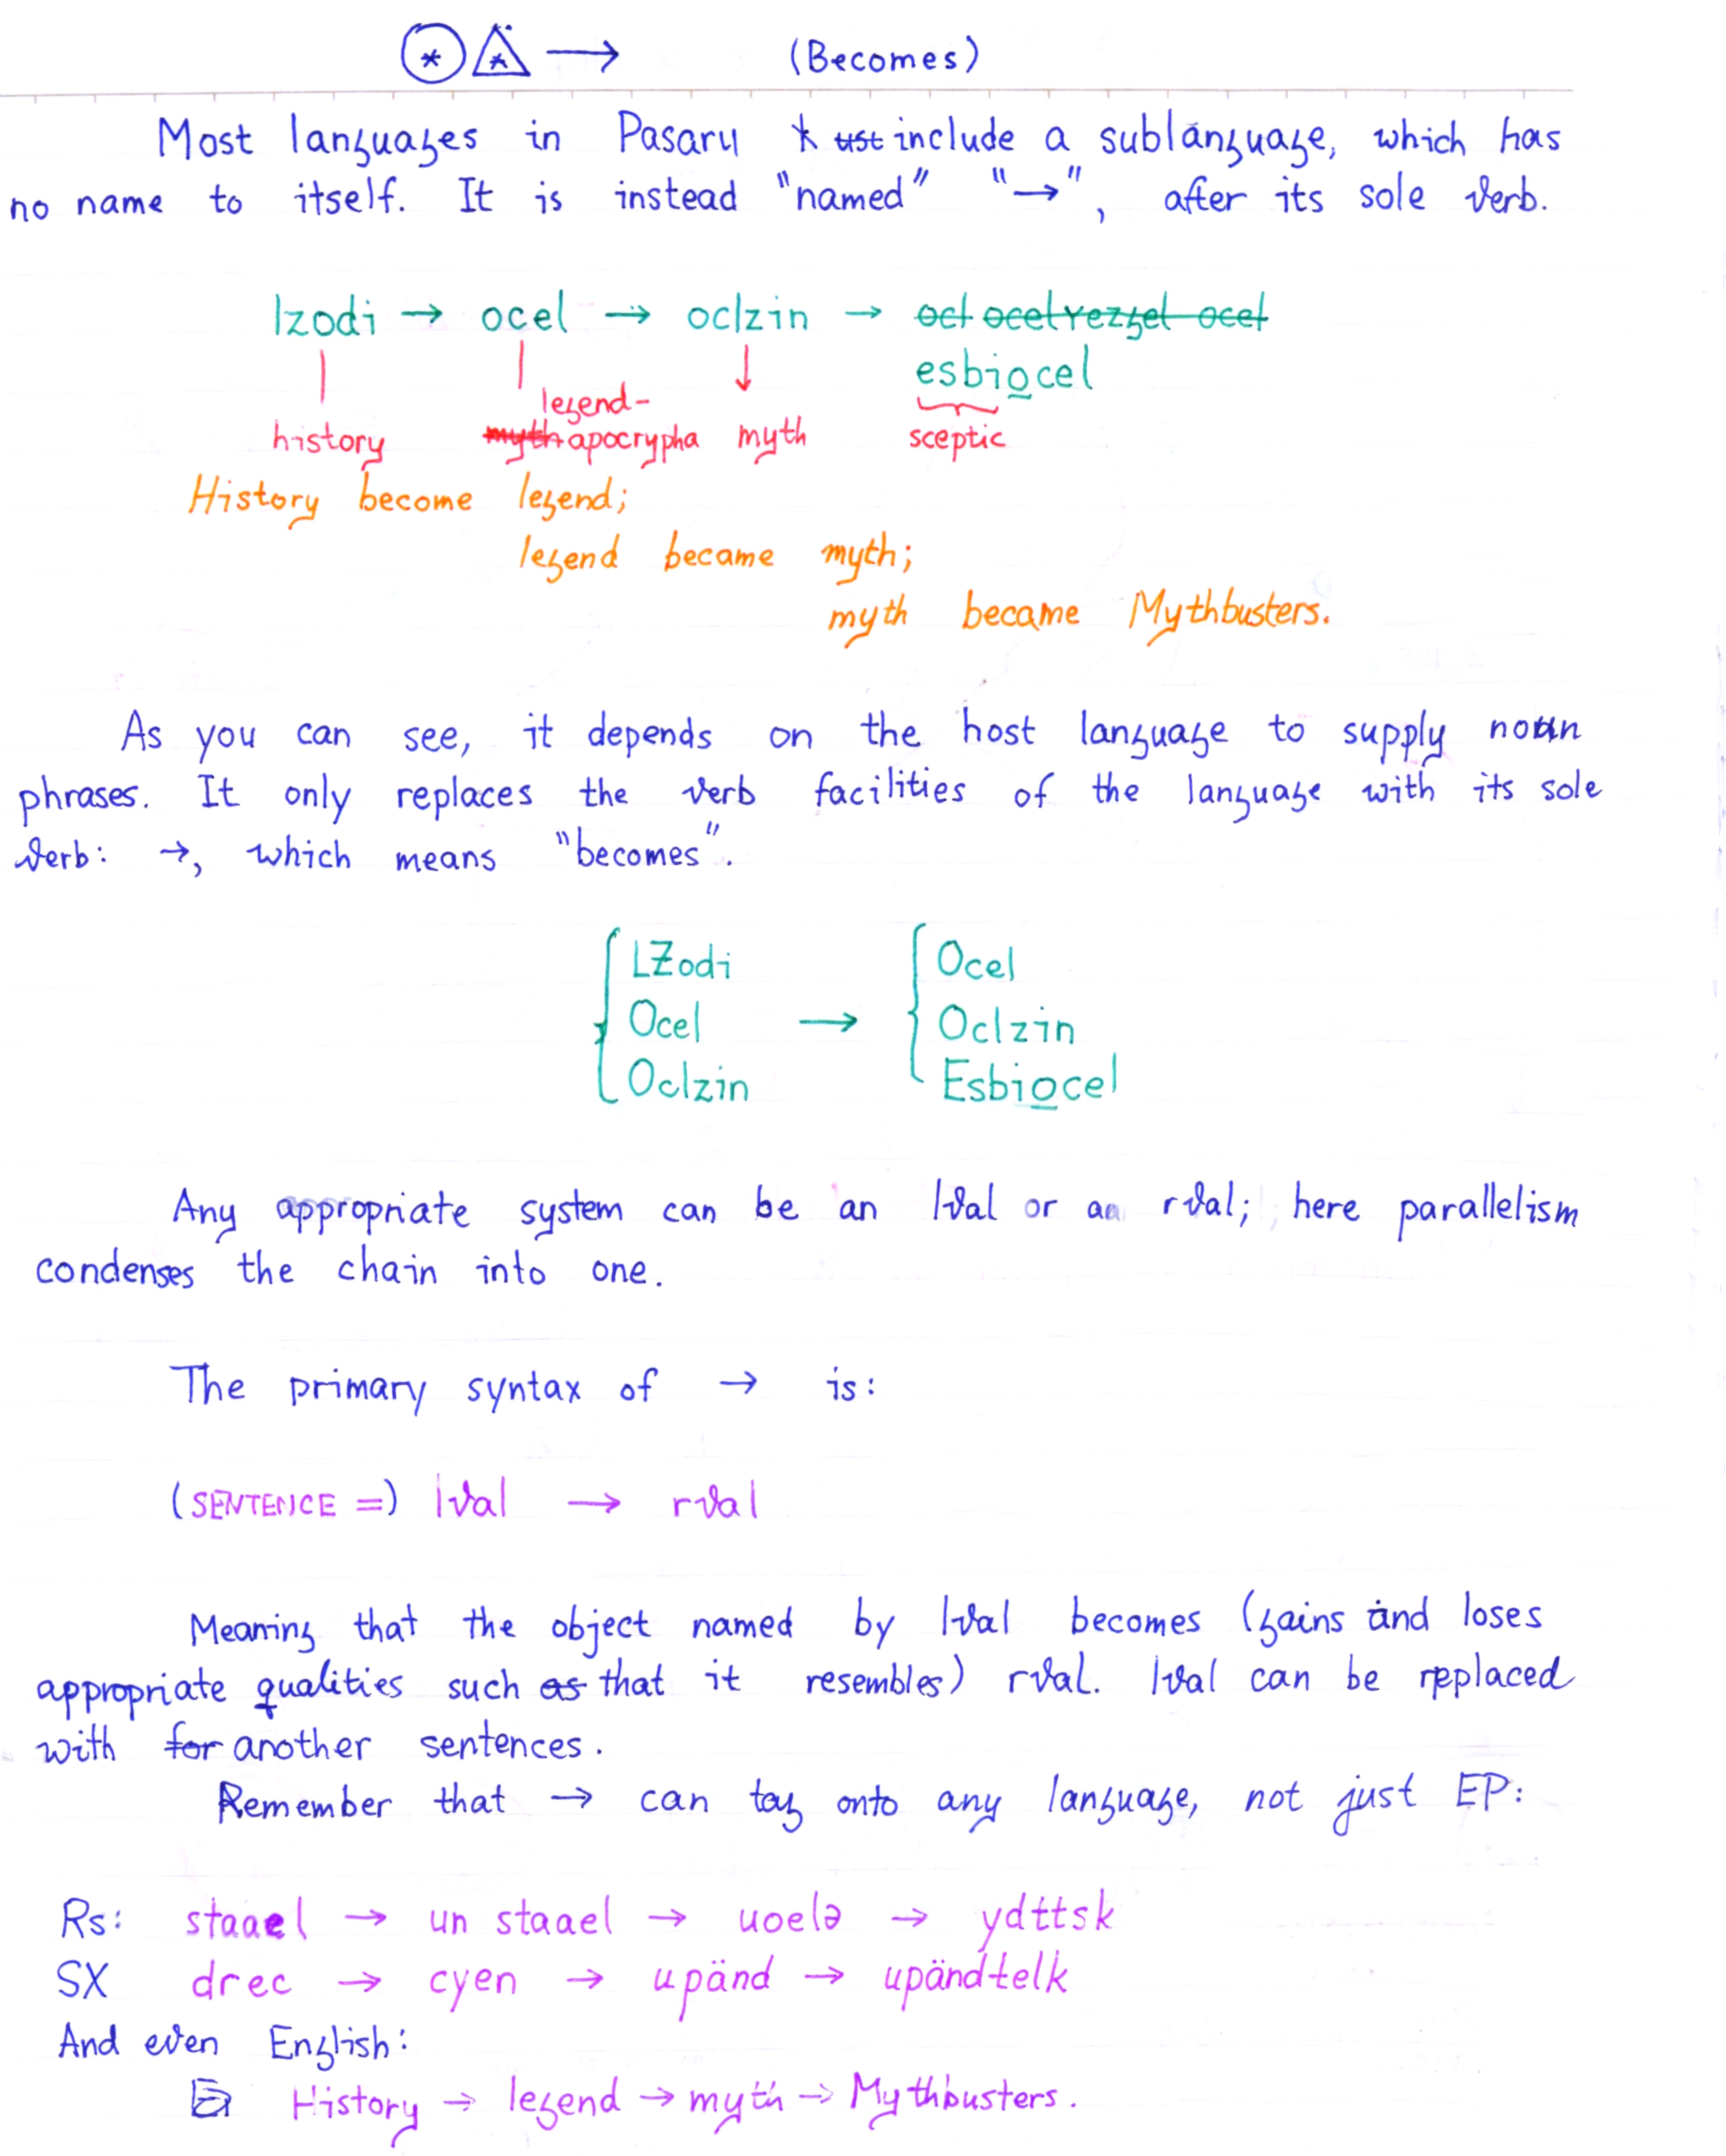 → (Becomes)
Most languages in Pasaru include a sublanguage, which has
no name to itself. It is instead "named" "→", after its sole verb.
lzodi → ocel → oclzin → oct ocelrezgel ocel
esbiocel
legend-
history myth apocrypha myth sceptic
History become legend;
legend became myth;
myth became Mythbusters.
As you can see, it depends on the host language to supply noun
phrases. It only replaces the verb facilities of the language with its sole
verb: →, which means "becomes".
LZodi Ocel
Ocel → Oclzin
Oclzin Esbiocel
Any appropriate system can be an lval or an rval; here parallelism
condenses the chain into one.
The primary syntax of → is:
(SENTENCE =) lval → rval
Meaning that the object named by lval becomes (gains and loses
appropriate qualities such as that it resembles) rval. lval can be replaced
with for another sentences.
Remember that → can tag onto any language, not just EP:
Rs: staael → un staael → uoelə → ydttsk
SX drec → cyen → upänd → upändtelk
And even English:
History → legend → myth → Mythbusters.